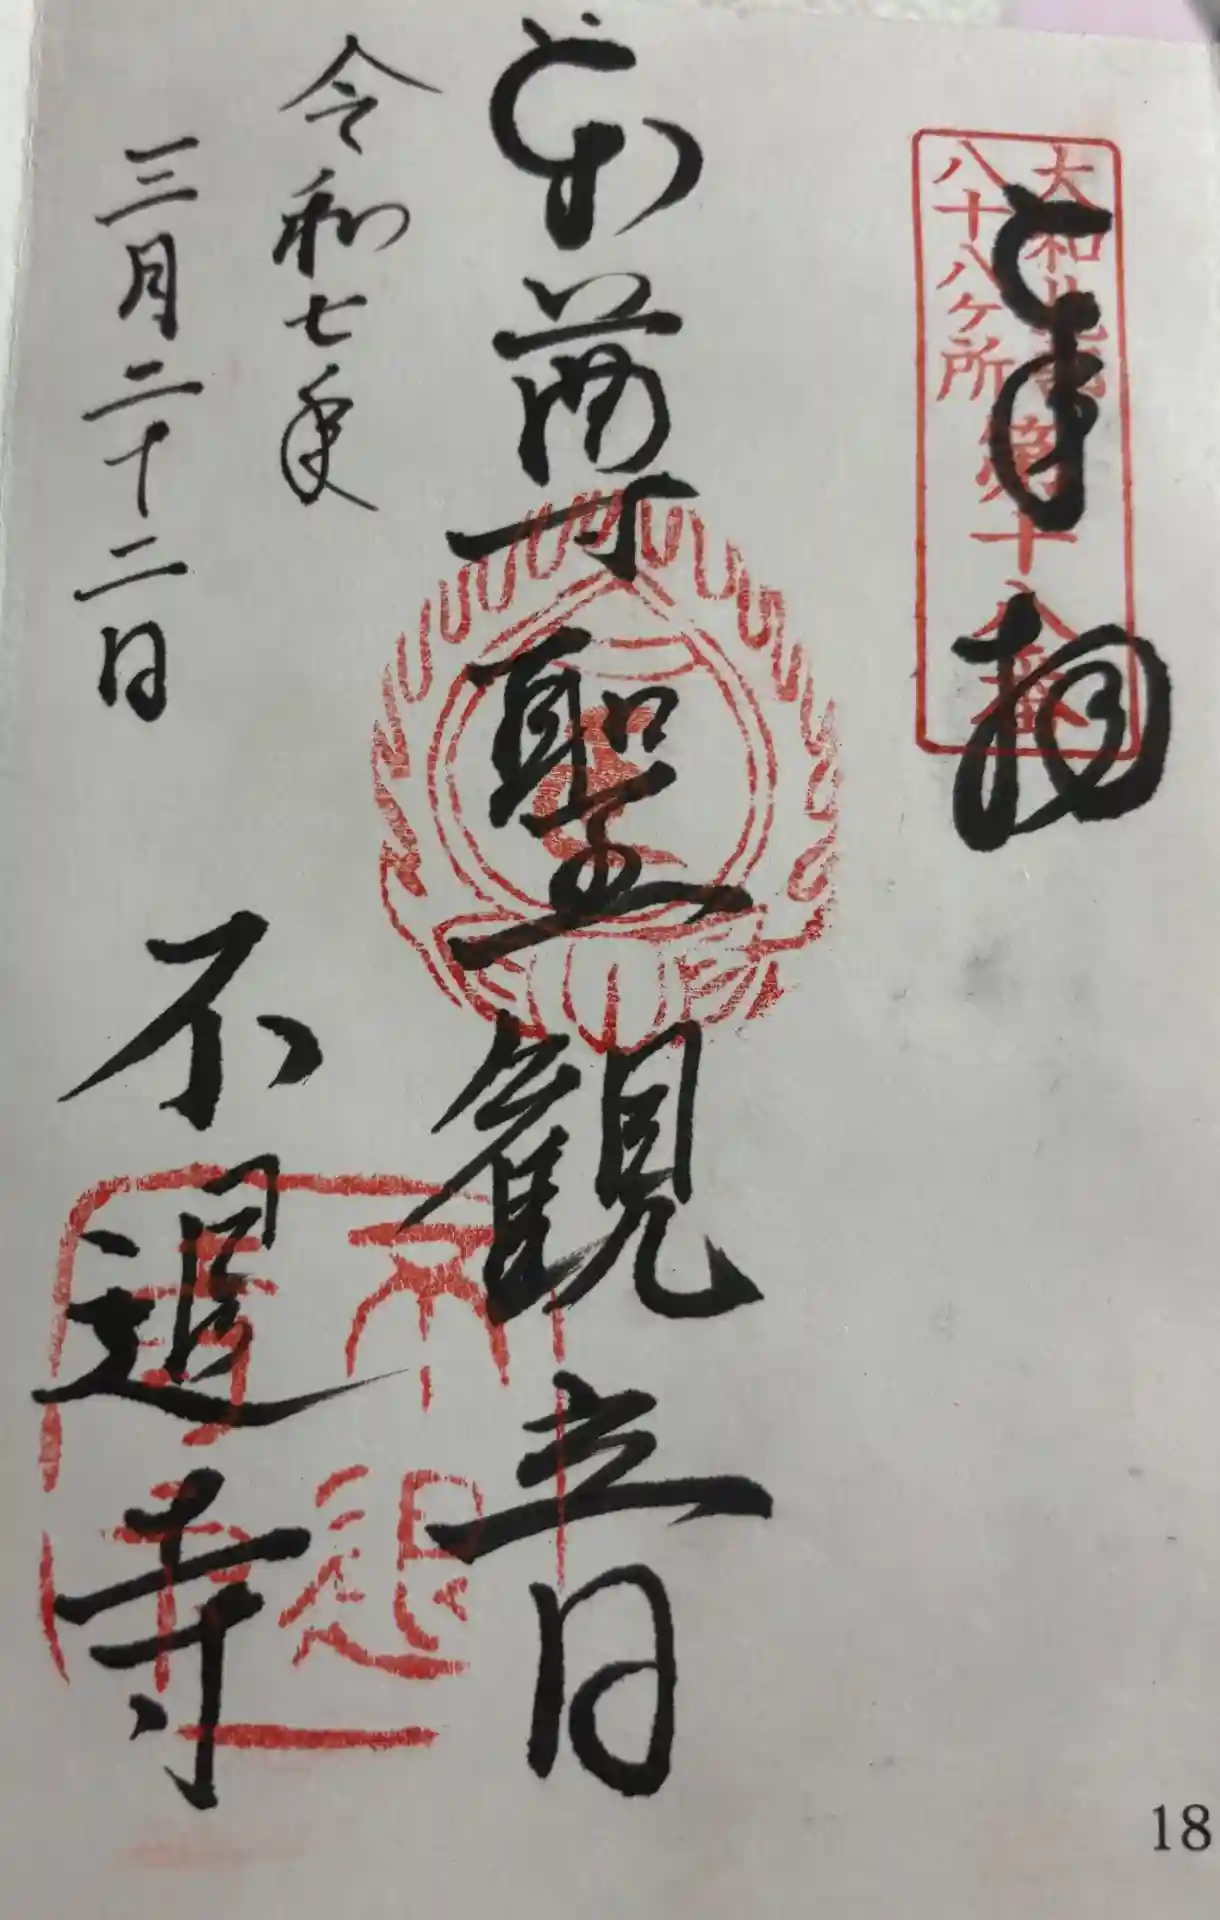 大和北部
八十八ヶ所
第十八番
奉拝
本尊 聖観音
令和七年
三月二十二日
不退寺
不退
寺印
18